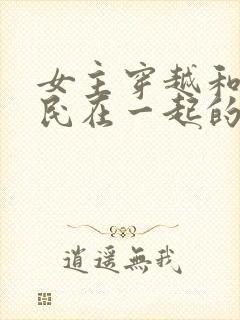 女主穿越和
民在一起的
逍遥無我